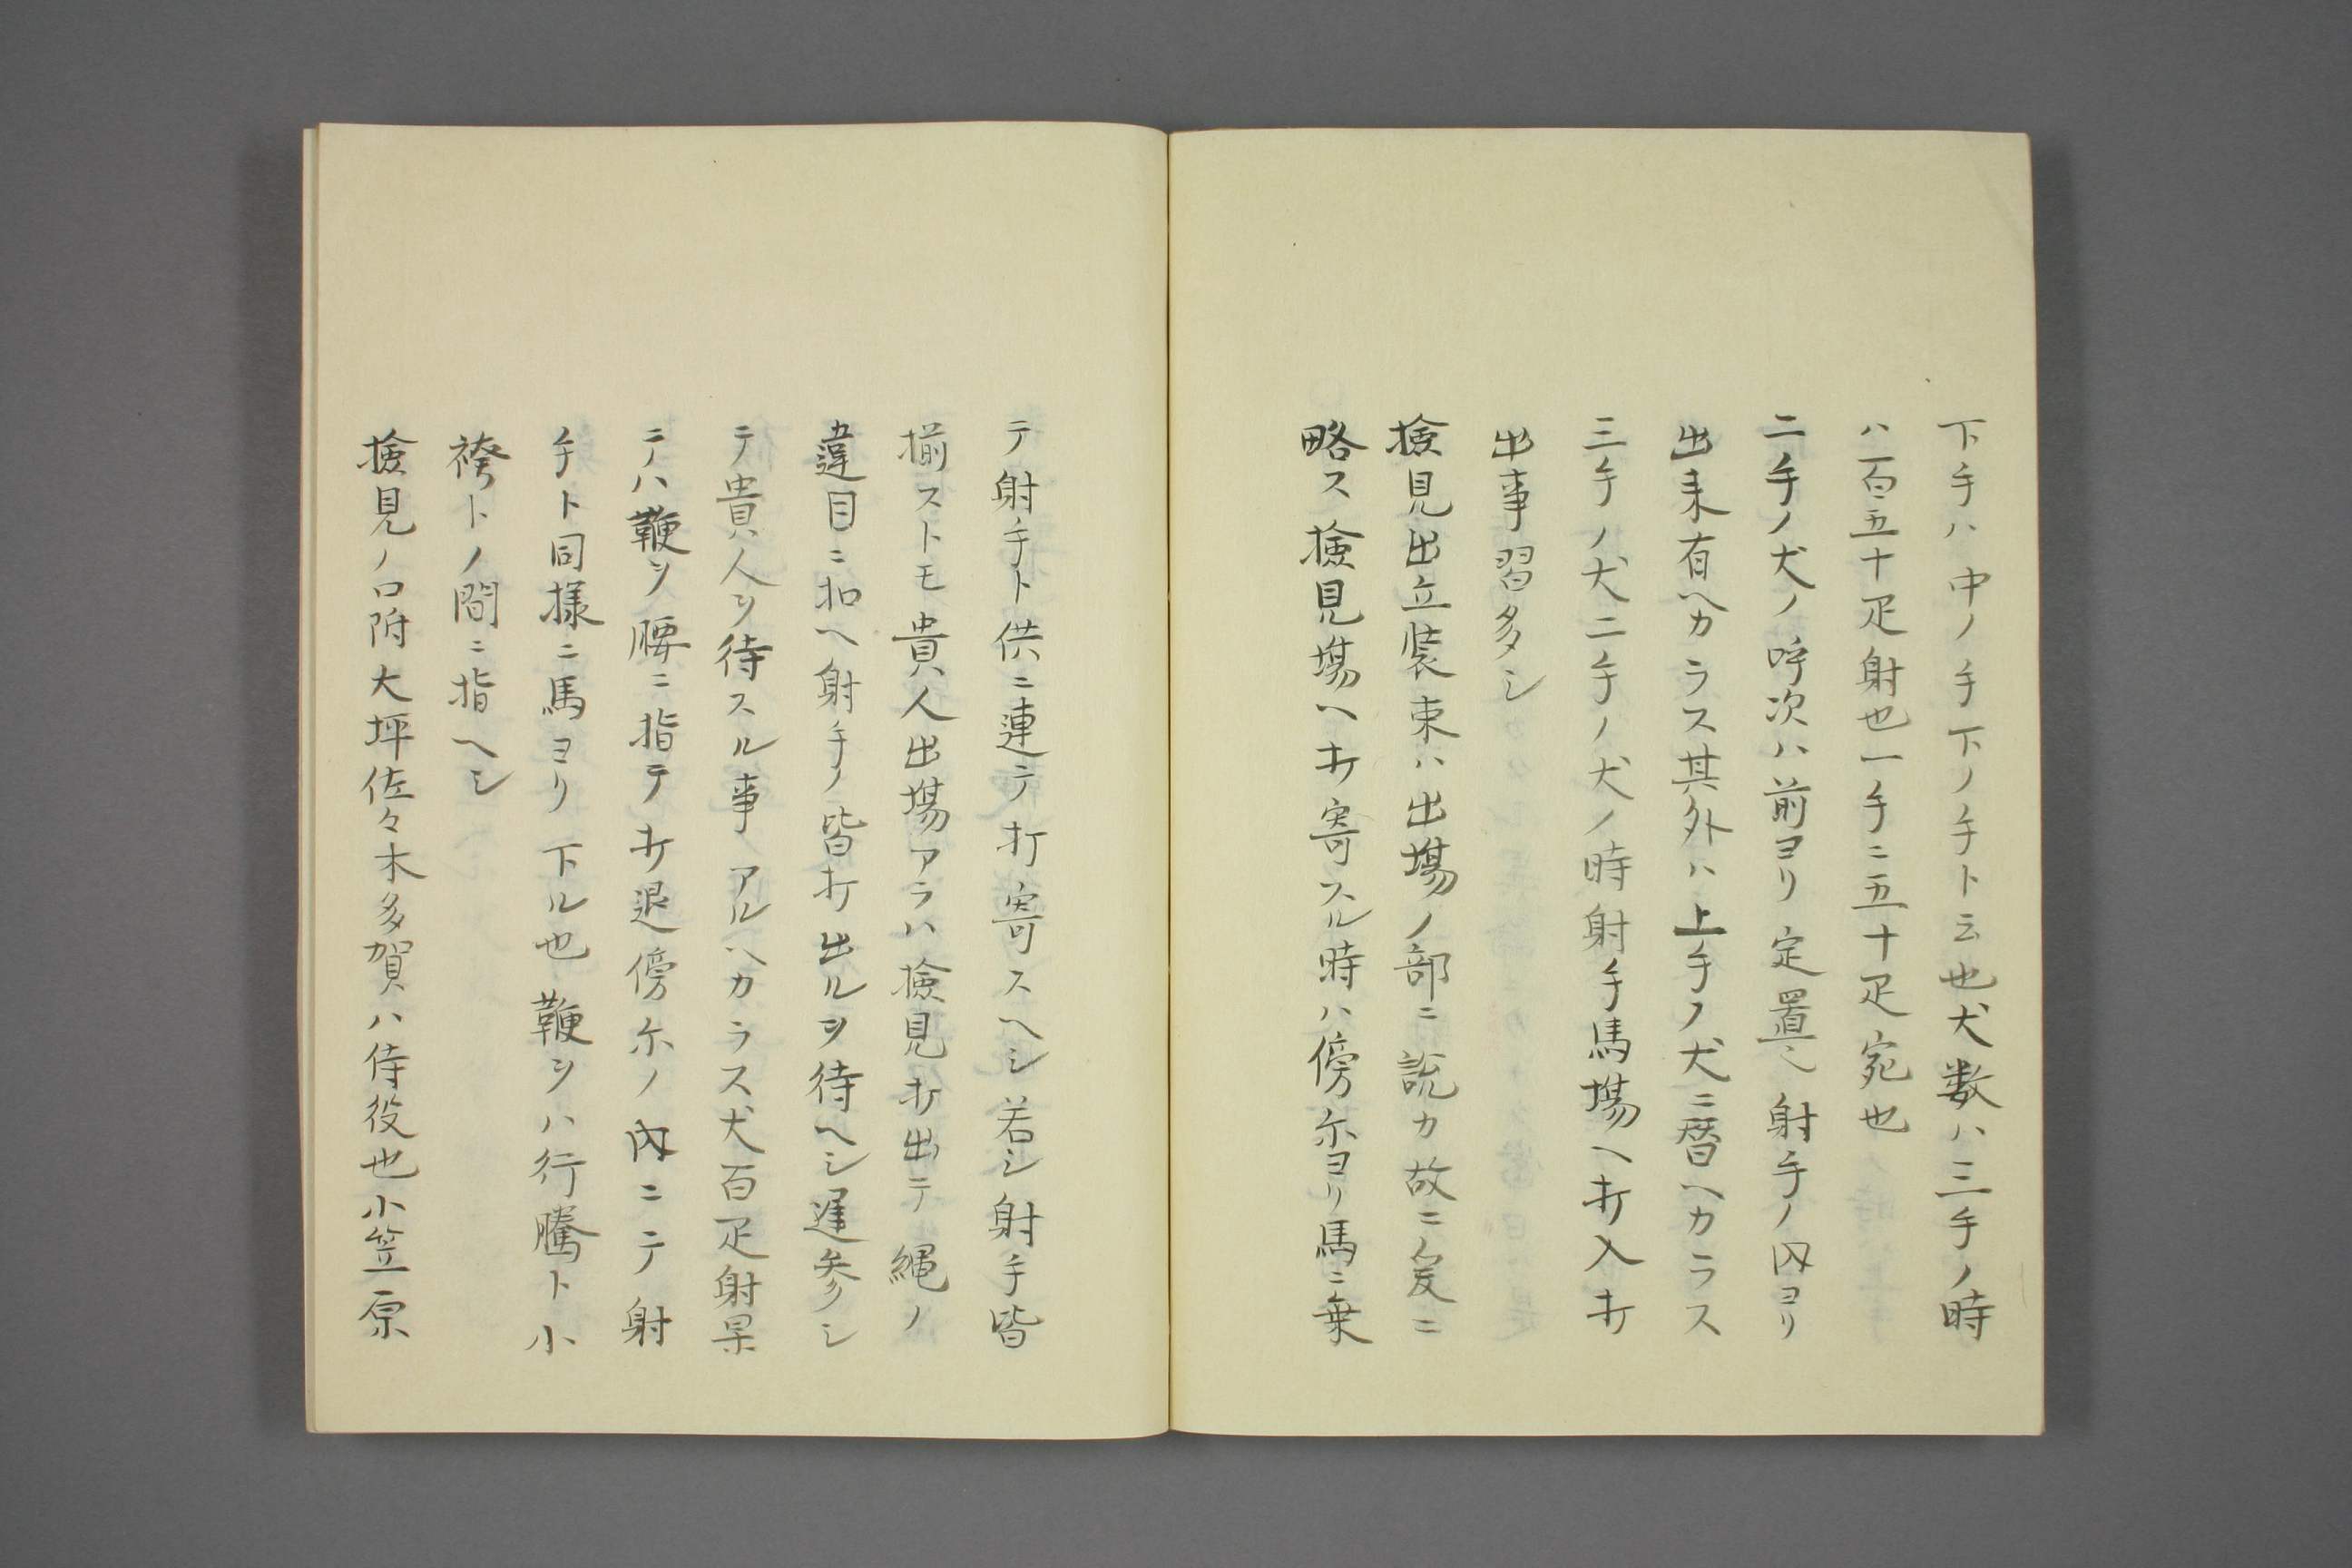 下手ハ中ノ手下ノ手ト云也犬数ハ三手ノ時
ハ一百五十疋射也一手ニ五十疋宛也
二手ノ犬ノ呼次ハ前ヨリ定置ヘシ射手ノ内ヨリ
出来有ヘカラス其外ハ上手ノ犬ニ替ヘカラス
三手ノ犬二手ノ犬ノ時射手馬場ヘ打入打
出事習多シ
検見出立装束ハ出場ノ部ニ説カ故ニ爰ニ
略ス検見場ヘ打寄スル時ハ傍尓ヨリ馬ニ乗
テ射手ト供ニ連テ打寄スヘシ若シ射手皆
揃ストモ貴人出場アラハ検見打出テ縄ノ
違目ニ扣ヘ射手ノ皆打出ルヲ待ヘシ遅参シ
テ貴人ヲ待スル事アルヘカラス犬百疋射果
テハ鞭ヲ腰ニ指テ打退傍尓ノ内ニテ射
手ト同様ニ馬ヨリ下ル也鞭ヲハ行騰ト小
袴トノ間ニ指ヘシ
検見ノ口附大坪佐々木多賀ハ侍役也小笠原